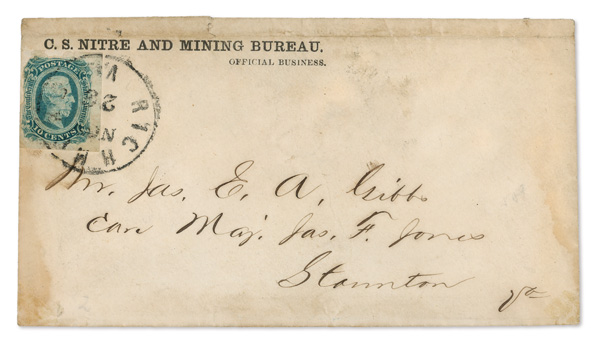 C. S. NITRE AND MINING BUREAU.
OFFICIAL BUSINESS.
POSTAGE
10 CENTS
RICH
23
Mr. Jas. E. A. Gibbs
Care Maj. Jas. F. Jones
Staunton
Va